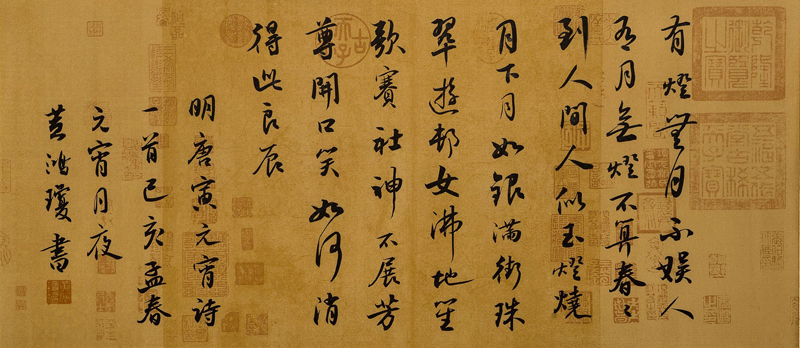 有燈無月不娛人
有月無燈不算春〻
到人間人似玉燈燒
月下月如銀滿街珠
翠遊邨女沸地笙
歌賽社神不展芳
尊開口笑如何消
得此良辰
明唐寅元宵詩
一首己亥孟春
元宵月夜
黃鴻瓊書